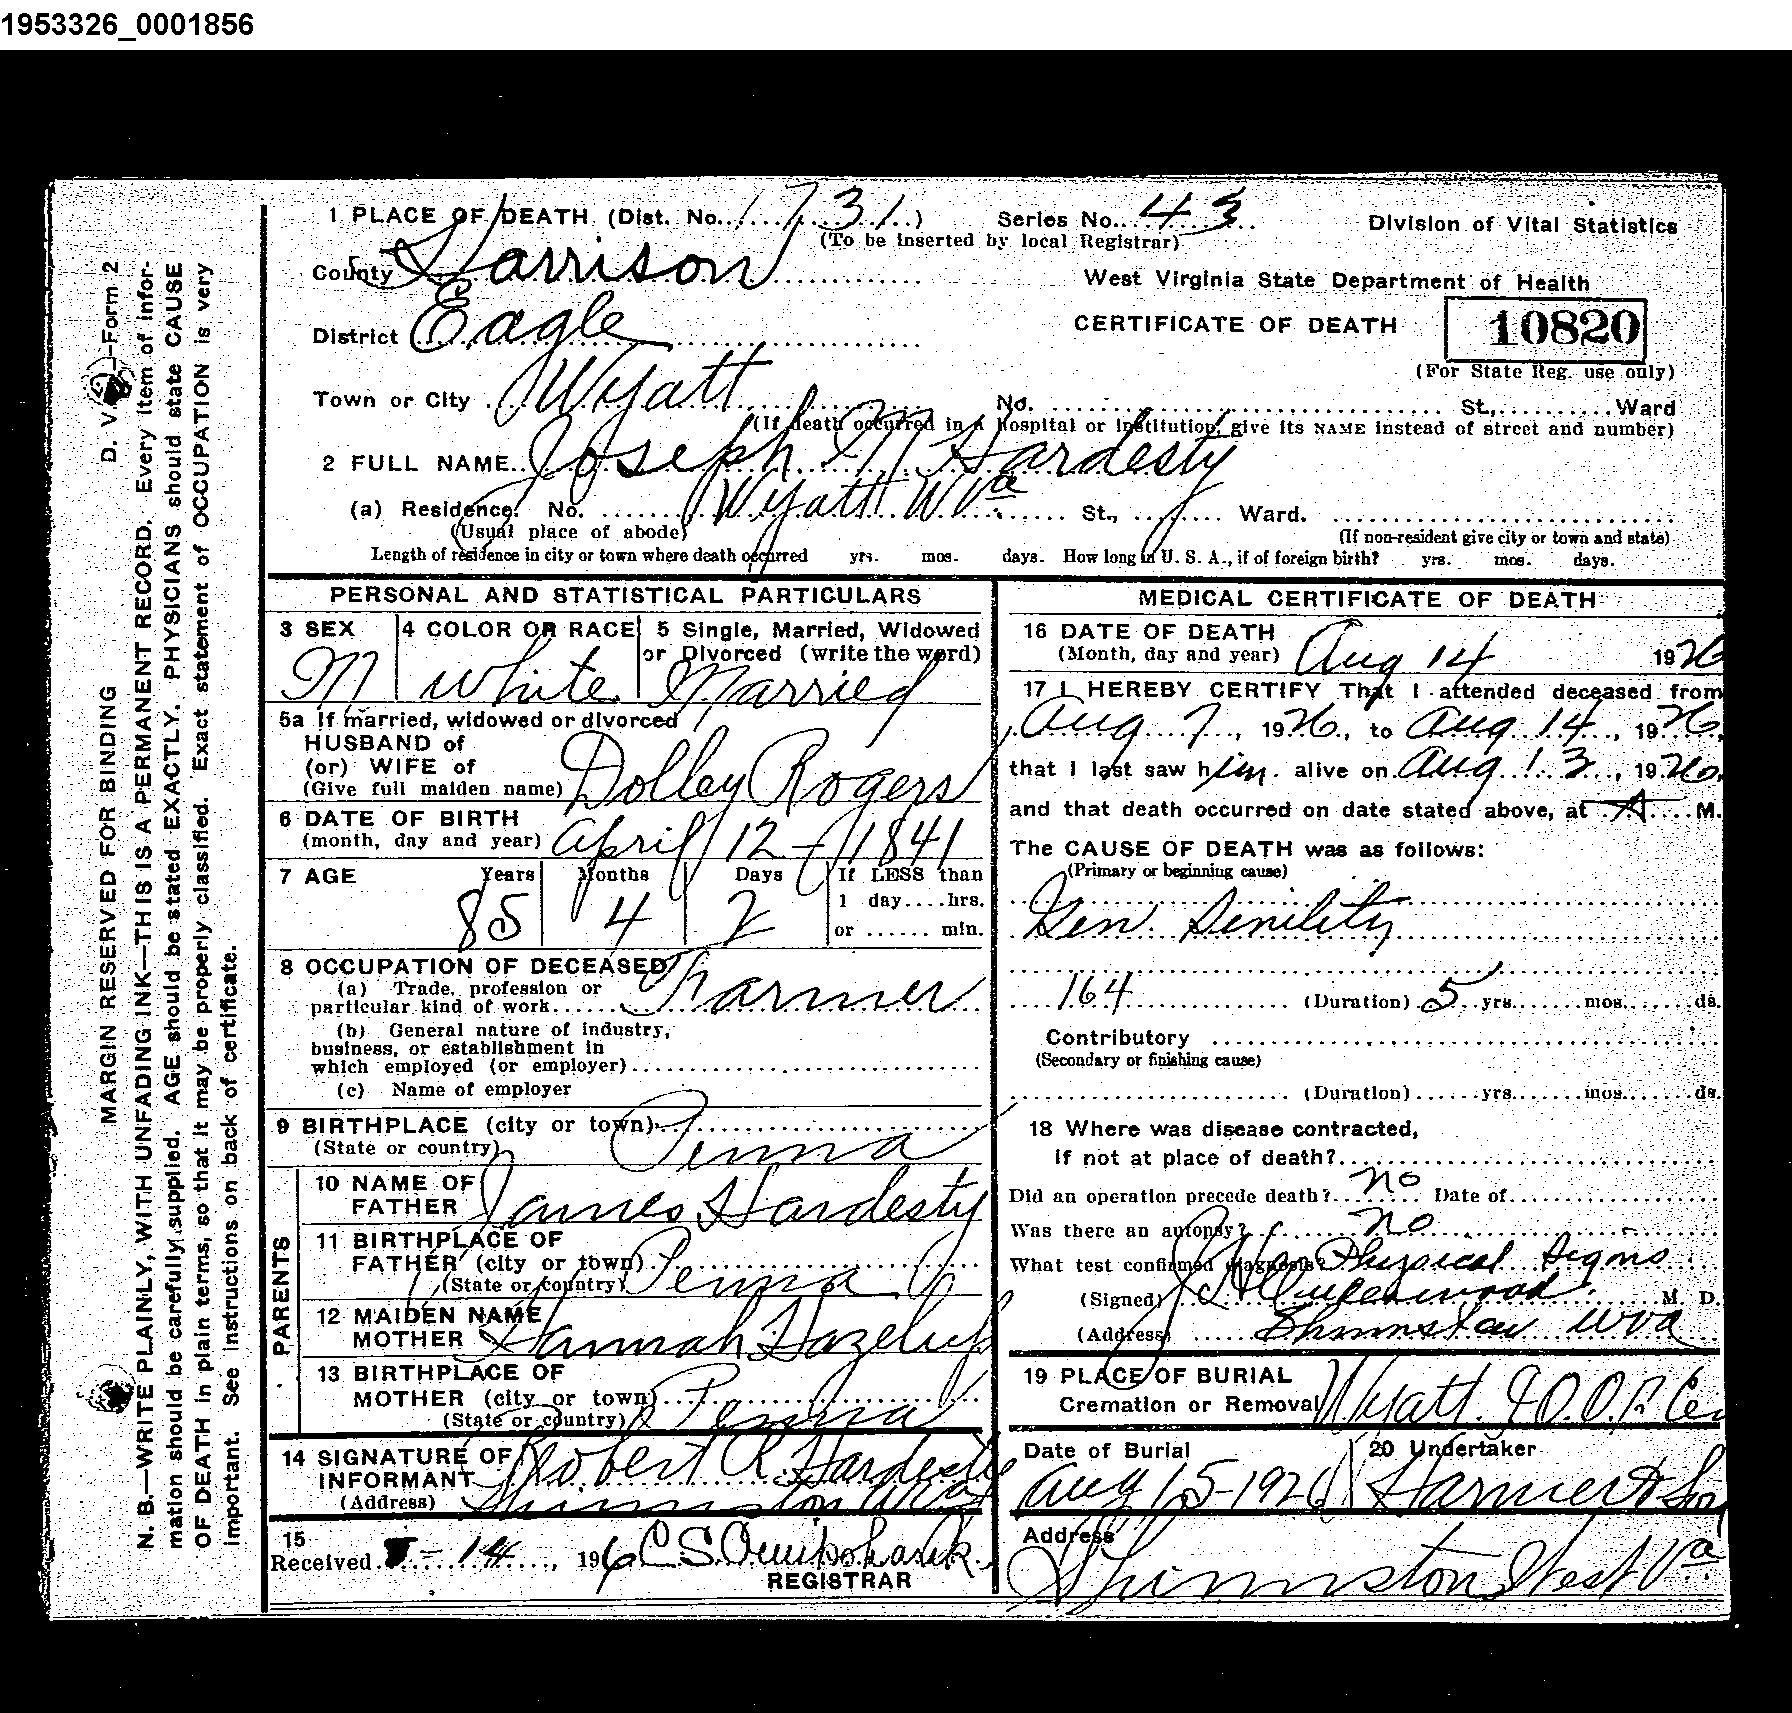 1953326_0001856
1 PLACE OF DEATH (Dist. No. 1731) Series No. 43 Division of Vital Statistics
(To be inserted by local Registrar)
County Harrison West Virginia State Department of Health
District Eagle CERTIFICATE OF DEATH 10820
(For State Reg. use only)
Town or City Wyatt No. St., Ward
(If death occurred in a hospital or institution, give its NAME instead of street and number)
2 FULL NAME Joseph M Hardesty
(a) Residence. No. Wyatt W Va St., Ward.
(Usual place of abode) (If non-resident give city or town and state)
Length of residence in city or town where death occurred yrs. mos. days. How long in U. S. A., if of foreign birth? yrs. mos. days.
PERSONAL AND STATISTICAL PARTICULARS
3 SEX 4 COLOR OR RACE 5 Single, Married, Widowed
or Divorced (write the word)
M white Married
5a If married, widowed or divorced
HUSBAND of
(or) WIFE of
(Give full maiden name) Dolley Rogers
6 DATE OF BIRTH
(month, day and year) April 12 - 1841
7 AGE Years Months Days If LESS than
1 day....hrs.
85 4 2 or ...... min.
8 OCCUPATION OF DECEASED
(a) Trade, profession or
particular kind of work Farmer
(b) General nature of industry,
business, or establishment in
which employed (or employer)
(c) Name of employer
9 BIRTHPLACE (city or town)
(State or country) Penna
PARENTS
10 NAME OF
FATHER James Hardesty
11 BIRTHPLACE OF
FATHER (city or town)
(State or country) Penna
12 MAIDEN NAME
MOTHER Hannah
13 BIRTHPLACE OF
MOTHER (city or town)
(State or country) Penna
14 SIGNATURE OF
INFORMANT Robert R Hardesty
(Address) Shinnston W Va
15
Received 8-14, 1926
REGISTRAR
MEDICAL CERTIFICATE OF DEATH
16 DATE OF DEATH
(Month, day and year) Aug 14 1926
17 I HEREBY CERTIFY That I attended deceased from
Aug 7, 1926, to Aug 14, 1926,
that I last saw him alive on Aug 13, 1926,
and that death occurred on date stated above, at A M.
The CAUSE OF DEATH was as follows:
(Primary or beginning cause)
Gen. Senility
164 (Duration) 5 yrs. mos. ds.
Contributory
(Secondary or finishing cause)
(Duration) yrs. mos. ds.
18 Where was disease contracted,
if not at place of death?
Did an operation precede death? no Date of
Was there an autopsy? no
What test confirmed diagnosis? Physical signs
(Signed) M. D.
(Address) Shinnston W Va
19 PLACE OF BURIAL
Cremation or Removal Wyatt I.O.O.F. Cem
Date of Burial 20 Undertaker
Aug 15-1926 Harmer & Son
Address
Shinnston West Va
MARGIN RESERVED FOR BINDING D. V. -Form 2
N. B.—WRITE PLAINLY, WITH UNFADING INK—THIS IS A PERMANENT RECORD. Every item of infor-
mation should be carefully supplied. AGE should be stated EXACTLY. PHYSICIANS should state CAUSE
OF DEATH in plain terms, so that it may be properly classified. Exact statement of OCCUPATION is very
important. See instructions on back of certificate.